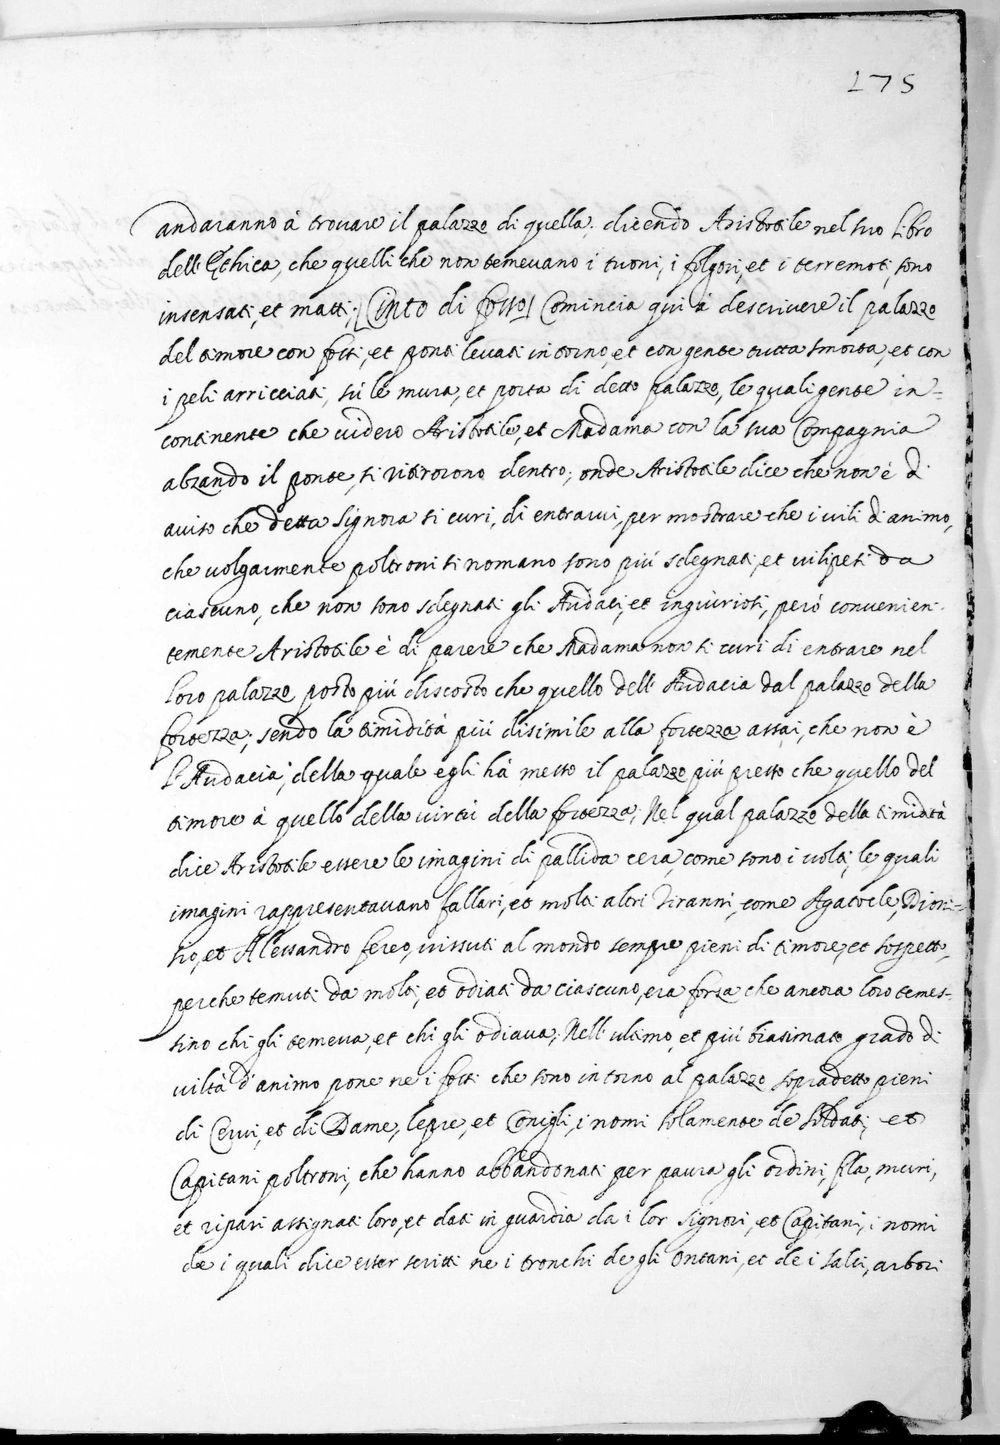 175
andaranno à trovare il palazzo di quella; dicendo Aristotile nel suo Libro
dell'Ethica, che quelli che non temevano i tuoni, i folgori, et i terremoti, sono
insensati, et matti; [Cinto di fosso] Comincia qui à descrivere il palazzo
del timore con fossi, et ponti levati intorno, et con gente tutta smorta, et con
i peli arricciati, sù le mura, et porta di detto palazzo, le quali gente in=
continente che videro Aristotile, et Madama con la sua Compagnia
alzando il ponte, si ritrorono dentro; onde Aristotile dice che non è di
aviso che detta Signora si curi, di entrarvi, per mostrare che i vili di animo,
che volgarmente poltroni si nomano sono più sdegnati, et vilipesi da
ciascuno, che non sono sdegnati gli Audaci, et ingiuriosi, però convenien-
temente Aristotile è di parere che Madama non si curi di entrare nel
loro palazzo posto più discosto che quello dell'Audacia dal palazzo della
fortezza; sendo la timidità più disimile alla fortezza assai, che non è
l'Audacia; della quale egli hà messo il palazzo più presso che quello del
timore à quello della virtù della fortezza; Nel qual palazzo della timidità
dice Aristotile essere le imagini di pallida cera, come sono i volti, le quali
imagini rappresentavano fallari, et molti altri Tiranni, come Agatocle, Dioni=
sio, et Alessandro fereo, vissuti al mondo sempre pieni di timore, et sospetto,
perche temuti da molti, et odiati da ciascuno, era forza che ancora loro temes-
sino chi gli temeva, et chi gli odiava; Nell'ultimo, et più biasimato grado di
viltà d'animo pone ne i fossi che sono intorno al palazzo sopradetto pieni
di Cervi, et di Dame, lepre, et Conigli, i nomi solamente de soldati, et
Capitani poltroni, che hanno abbandonati per paura gli ordini, fila, muri,
et ripari assignati loro, et dati in guardia da i lor signori, et Capitani, i nomi
de i quali dice esser scritti ne i tronchi de gli Ontani, et de i salci, arbori